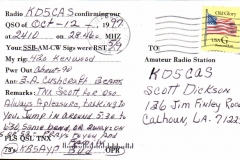 Radio KD5CAS confirming our
QSO of Oct-12- 1997
at 2410 on 28.460 MHz
Your SSB-AM-CW Sigs were RST 59
My rig: 430 Kenwood
Pwr Out: about-90
Ant: 3 A Cushcraft Beam
Remarks: Tnx Scott for QSO
Always A pleasure, talking To
you Jump in around 5:30 to
6:30 same band, or
PLS QSL TNX
73's KB5AYP OPR
Old Glory
USA
TO:
Amateur Radio Station
KD5CAS
Scott Dickson
126 Jim Finley Road
Calhoun, LA. 71225